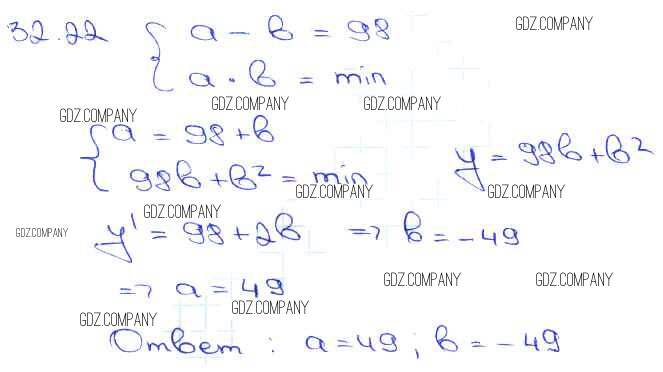 32.22 { a - b = 98 GDZ.COMPANY
a · b = min
GDZ.COMPANY GDZ.COMPANY GDZ.COMPANY
{ a = 98 + b
98b + b² = min y = 98b + b²
GDZ.COMPANY GDZ.COMPANY
GDZ.COMPANY
GDZ.COMPANY y' = 98 + 2b => b = -49
GDZ.COMPANY GDZ.COMPANY
=> a = 49
GDZ.COMPANY
GDZ.COMPANY
Ответ : a = 49 ; b = -49